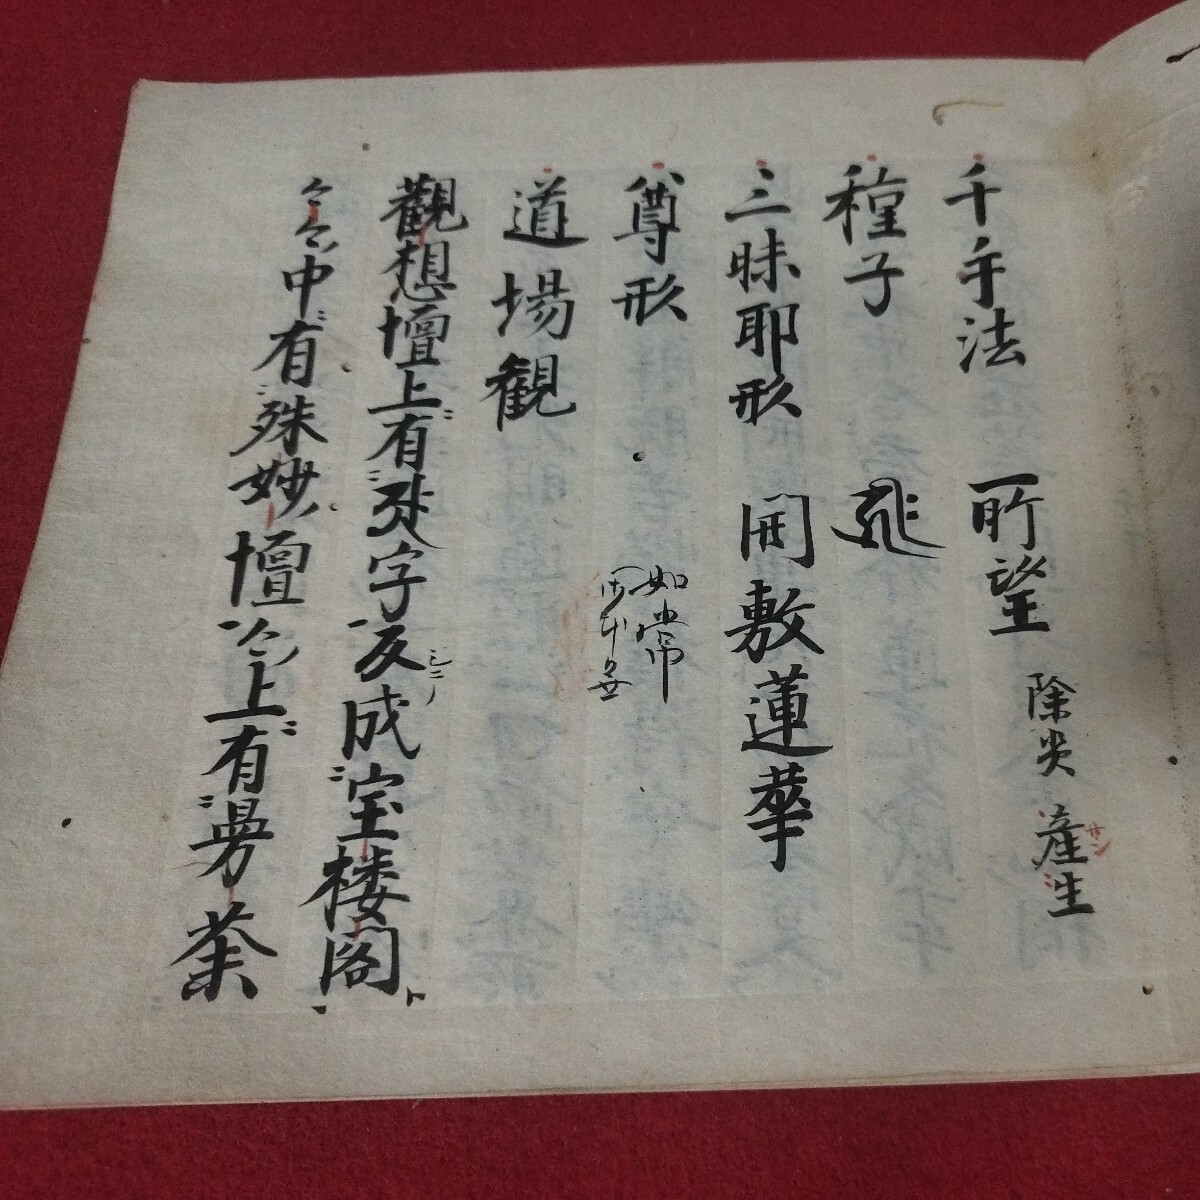 千手法 一所望 除災 產生 サン
種子
三昧耶形 開敷蓮華
尊形 如常
道場観
觀想壇上有 字反成宝楼閣
々々中有殊妙壇々上有曼荼